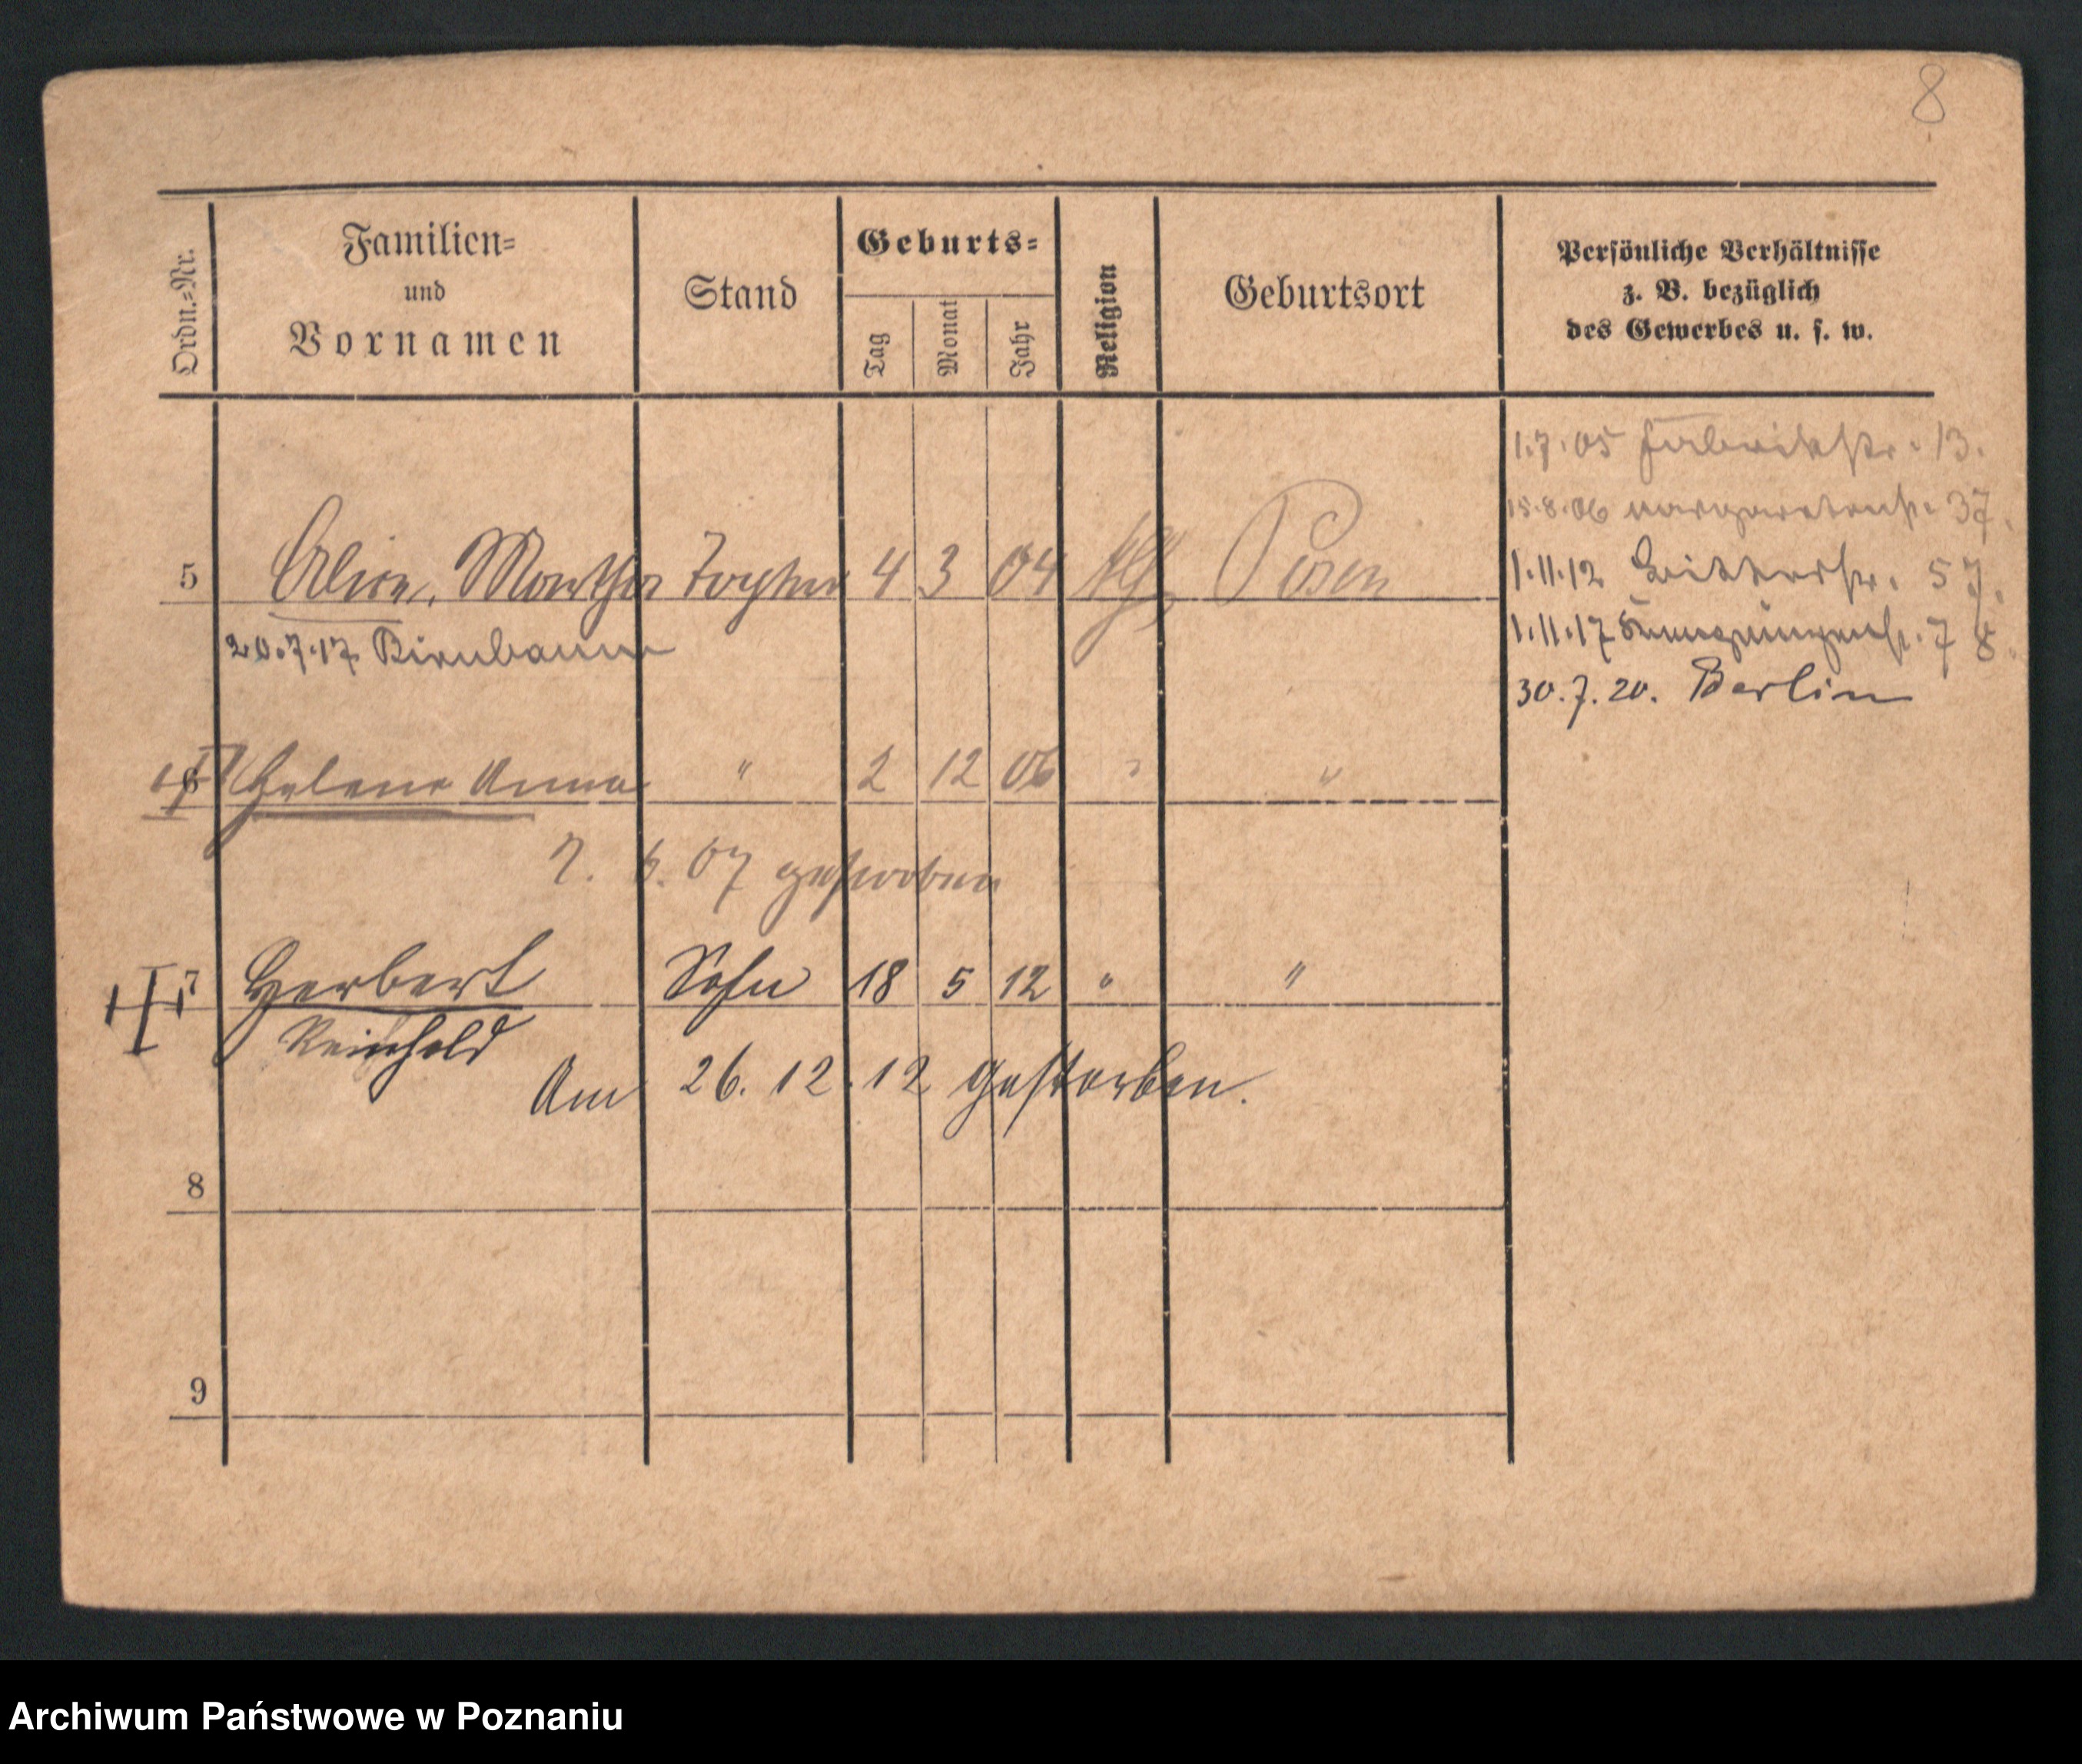 8
Ordn.=Nr.
Familien=
und
Vornamen
Stand
Geburts=
Tag
Monat
Jahr
Religion
Geburtsort
Persönliche Verhältnisse
z. B. bezüglich
des Gewerbes u. s. w.
1.7.05 Fabrikstr. 13.
15.8.06 Margaretenstr. 37.
5 Alice, Martha Tochter 4 3 04 Posen
1.11.12 57.
20.7.17 Birnbaum
1.11.17 78.
30.7.20. Berlin
6 Helene Anna " 2 12 06 " "
7. 6. 07 gestorben
7 Herbert Sohn 18 5 12 " "
Reinhold
Am 26.12.12 gestorben.
8
9
Archiwum Państwowe w Poznaniu